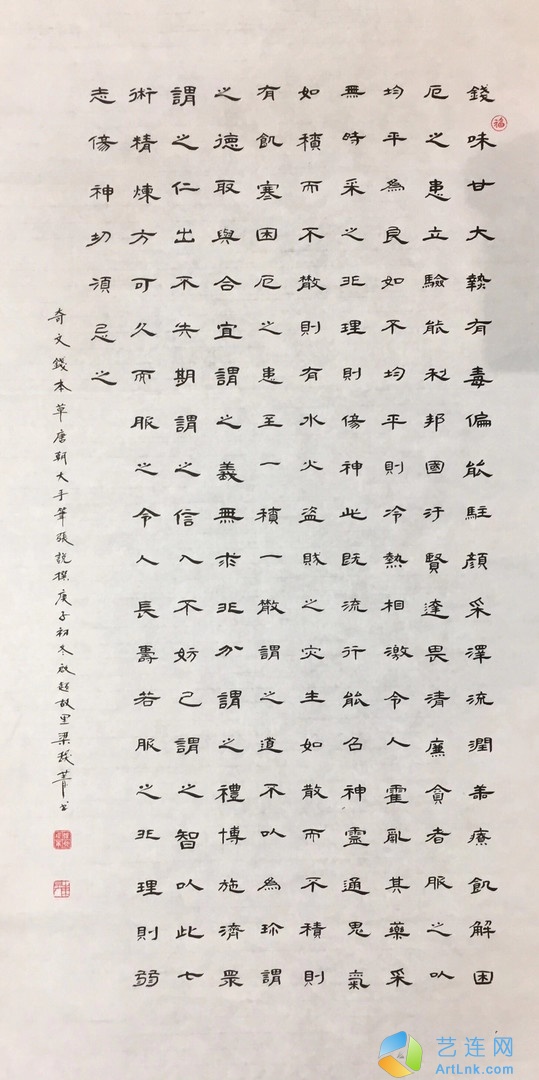 錢味甘大熱有毒偏能駐顏采澤流潤善療飢解困
厄之患立驗能利邦國汙賢達畏清廉貪者服之以
均平為良如不均平則冷熱相激令人霍亂其藥采
無時采之非理則傷神此既流行能召神靈通鬼氣
如積而不散則有水火盜賊之灾生如散而不積則
有飢寒困厄之患至一積一散謂之道不以為珍謂
之德取與合宜謂之義無求非分謂之禮博施濟眾
謂之仁出不失期謂之信入不妨己謂之智以此七
術精煉方可久而服之令人長壽若服之非理則弱
志傷神切須忌之
奇文錢本草唐朝大手筆張説撰庚子初冬啟超故里梁華书
福
艺连网
ArtLnk.com